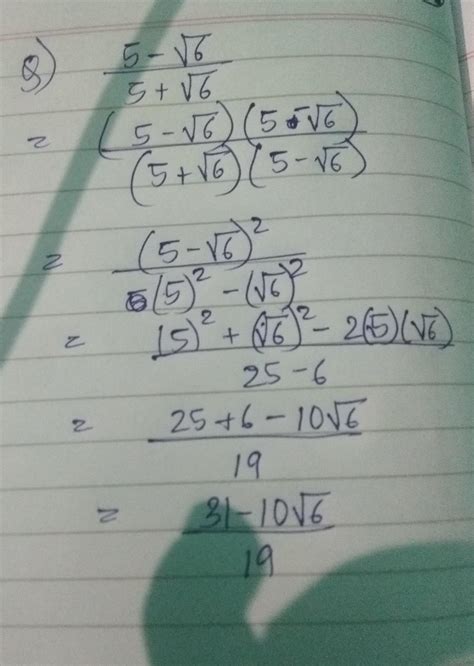 8) (5 - √6)/(5 + √6)
= (5 - √6)(5 - √6)/(5 + √6)(5 - √6)
= (5 - √6)²/(5)² - (√6)²
= (5)² + (√6)² - 2(5)(√6)/25 - 6
= 25 + 6 - 10√6/19
= 31 - 10√6/19